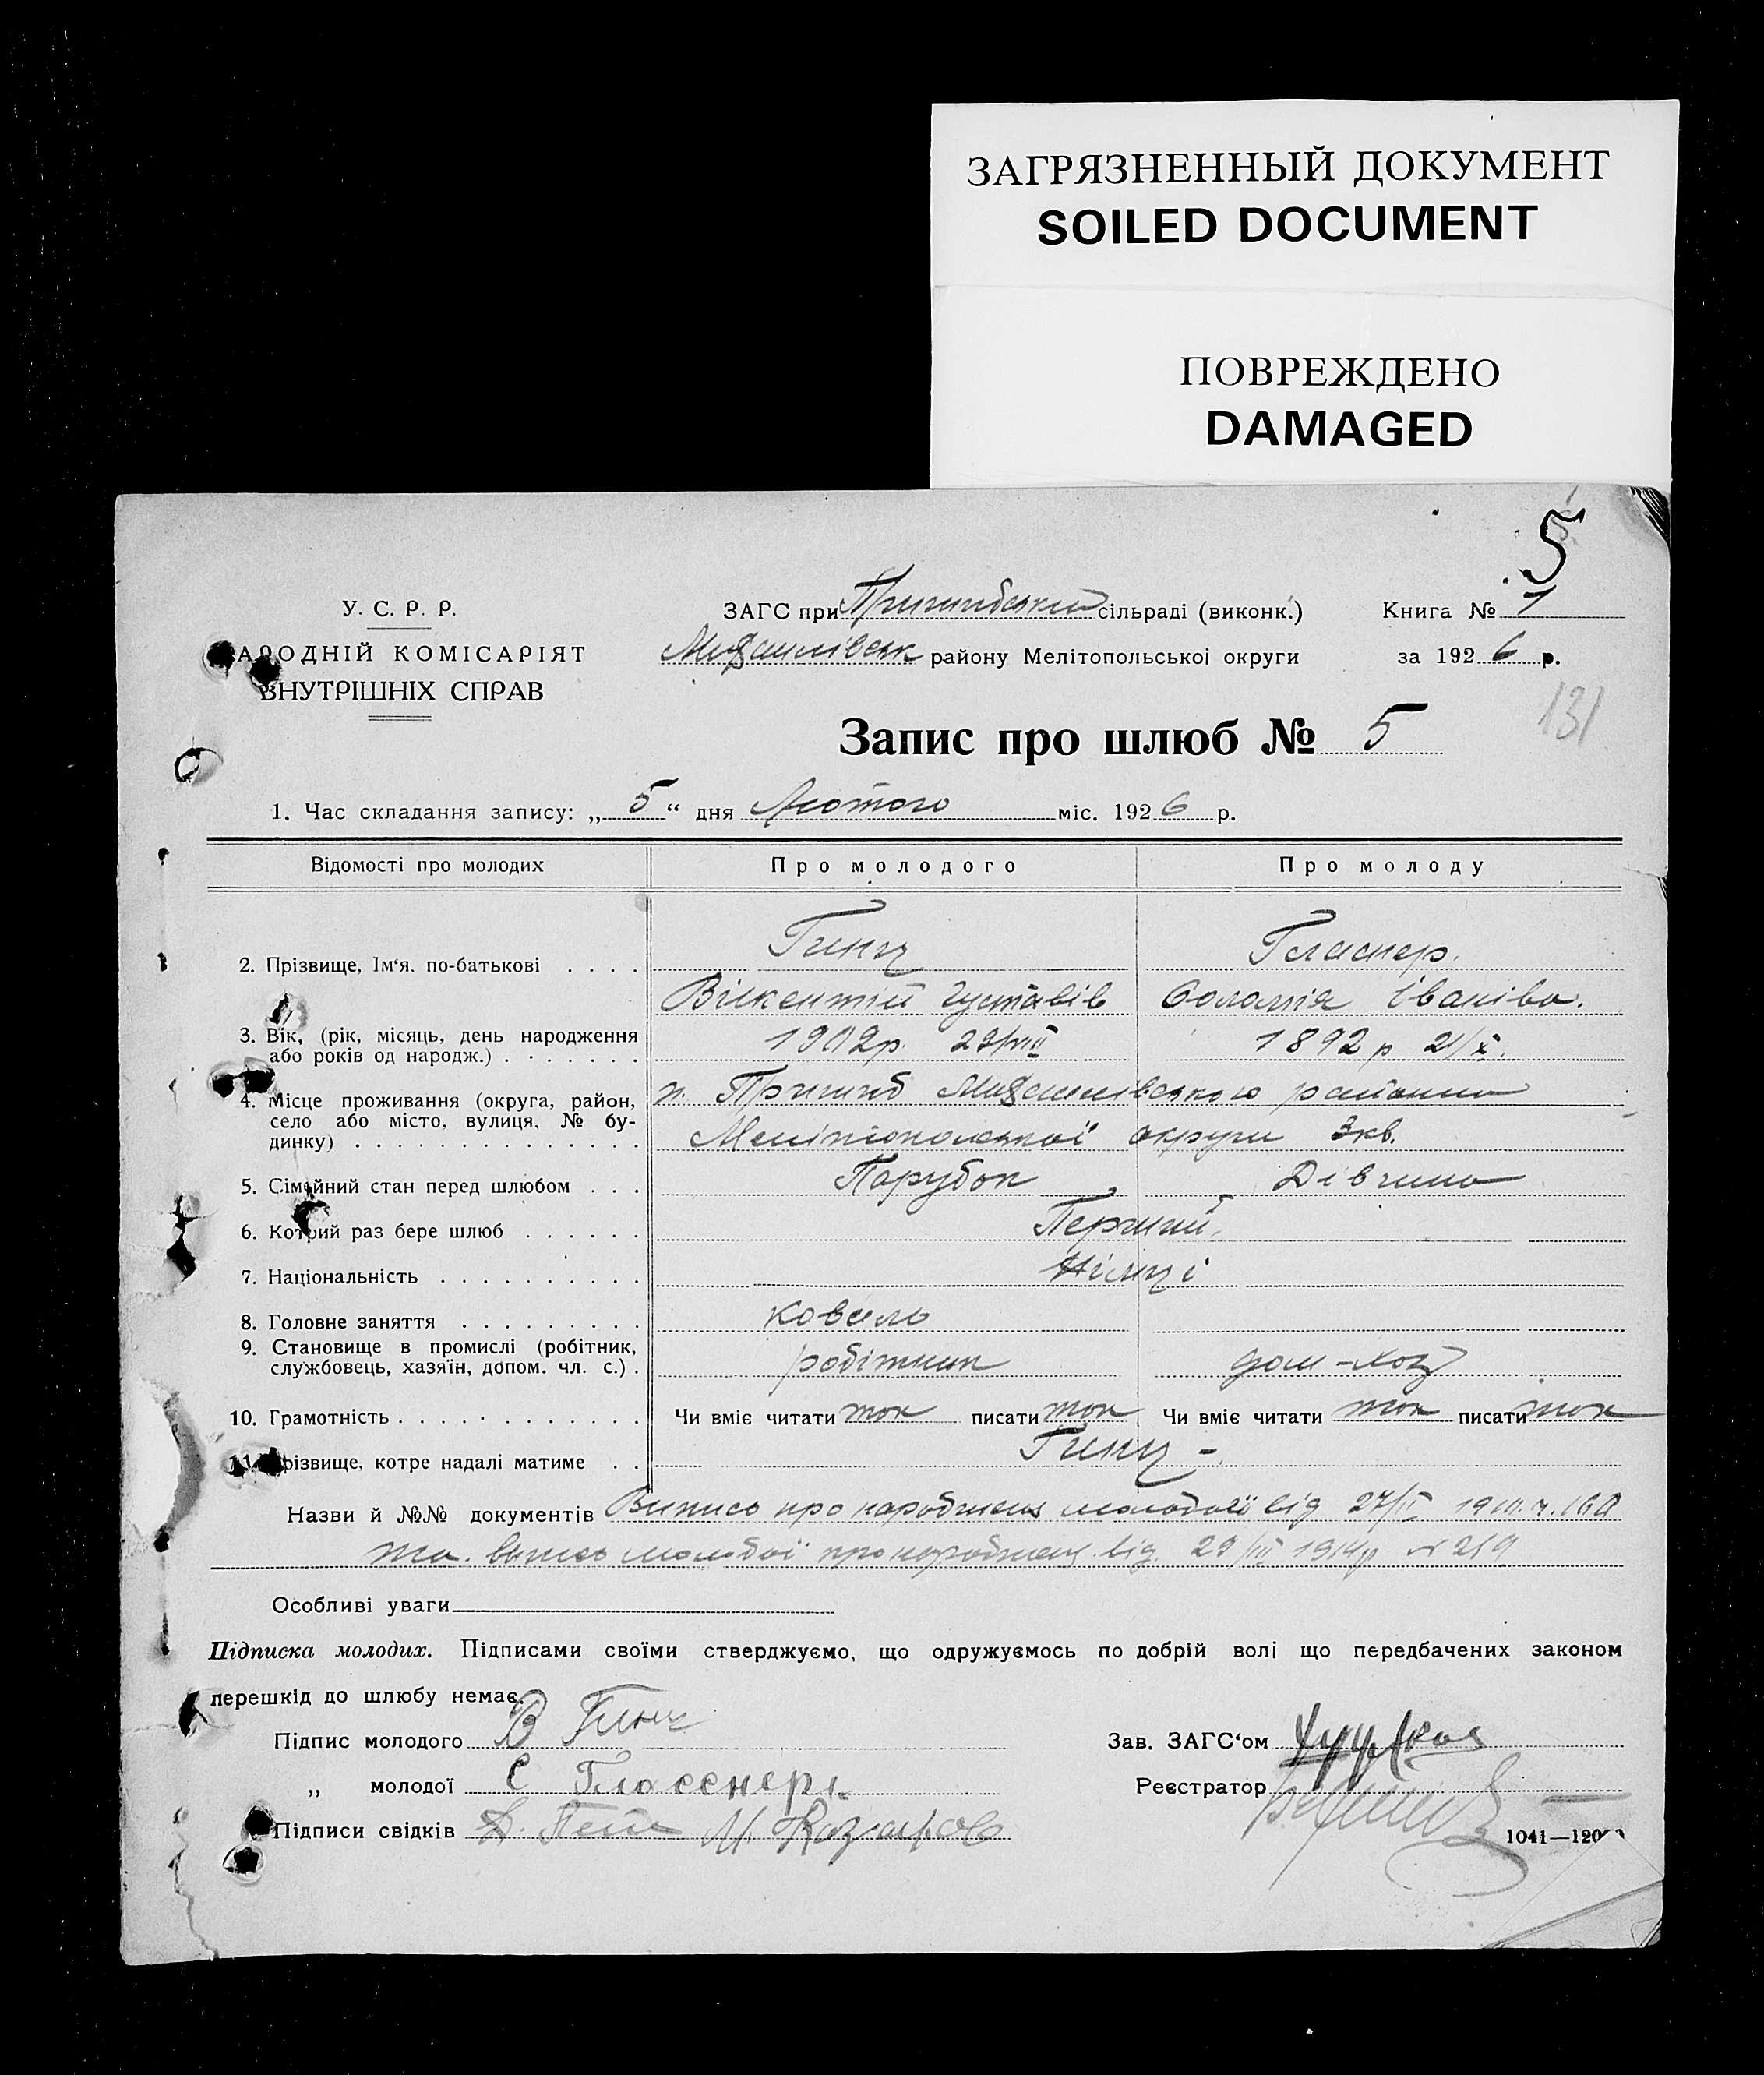 ЗАГРЯЗНЕННЫЙ ДОКУМЕНТ
SOILED DOCUMENT
ПОВРЕЖДЕНО
DAMAGED
5
У. С. Р. Р.
ЗАГС при Пришибський сільраді (виконк.) Книга № 1
АРОДНІЙ КОМІСАРІЯТ
Михайлівськ району Мелітопольської округи за 1926 р.
ВНУТРІШНІХ СПРАВ
131
Запис про шлюб № 5
1. Час складання запису: „ 5 “ дня Лютого міс. 1926 р.
Відомості про молодих Про молодого Про молоду
Гинц Гласнер.
2. Прізвище, Ім‘я. по-батькові . . . .
Вікентій Густавів Соломія Іванівна.
3. Вік, (рік, місяць, день народження
або років од народж.) . . . . . . . 1902 р. 29/VIII 1892 р 21/X.
4. Місце проживання (округа, район, п. Пришиб Михайлівського району
село або місто, вулиця, № бу-
динку) . . . . . . . . . . . . . . Мелітопольської округи 3кв.
5. Сімейний стан перед шлюбом . . . Парубок Дівчина
6. Котрий раз бере шлюб . . . . . . Перший.
7. Національність . . . . . . . . . . Німці
8. Головне заняття . . . . . . . . . коваль
9. Становище в промислі (робітник,
службовець, хазяїн, допом. чл. с.) . робітник дом-хоз
10. Грамотність . . . . . . . . . . . . Чи вміє читати так писати так Чи вміє читати так писати так
11. різвище, котре надалі матиме . . Гинц -
Назви й №№ документів Випись про народження молодої від 27/
та випись молодої про народження від 29/VIII 1914р № 219
Особливі уваги
Підписка молодих. Підписами своїми стверджуємо, що одружуємось по добрій волі що передбачених законом
перешкід до шлюбу немає.
Підпис молодого В Гинц Зав. ЗАГС‘ом
„ молодої С Гласснеръ Реєстратор
Підписи свідків М. Казаров
1041—120